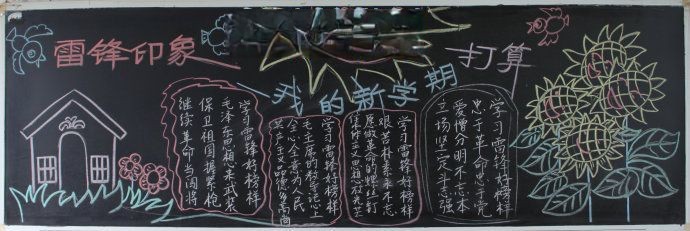 雷锋印象
我的新学期
打算
学习雷锋好榜样
忠于革命忠于党
爱憎分明不忘本
立场坚定斗志强
学习雷锋好榜样
艰苦朴素永不忘
愿做革命的螺丝钉
集体主义思想放光芒
学习雷锋好榜样
毛主席的教导记心上
全心全意为人民
共产主义品德多高尚
学习雷锋好榜样
毛泽东思想来武装
保卫祖国握紧枪
继续革命当闯将